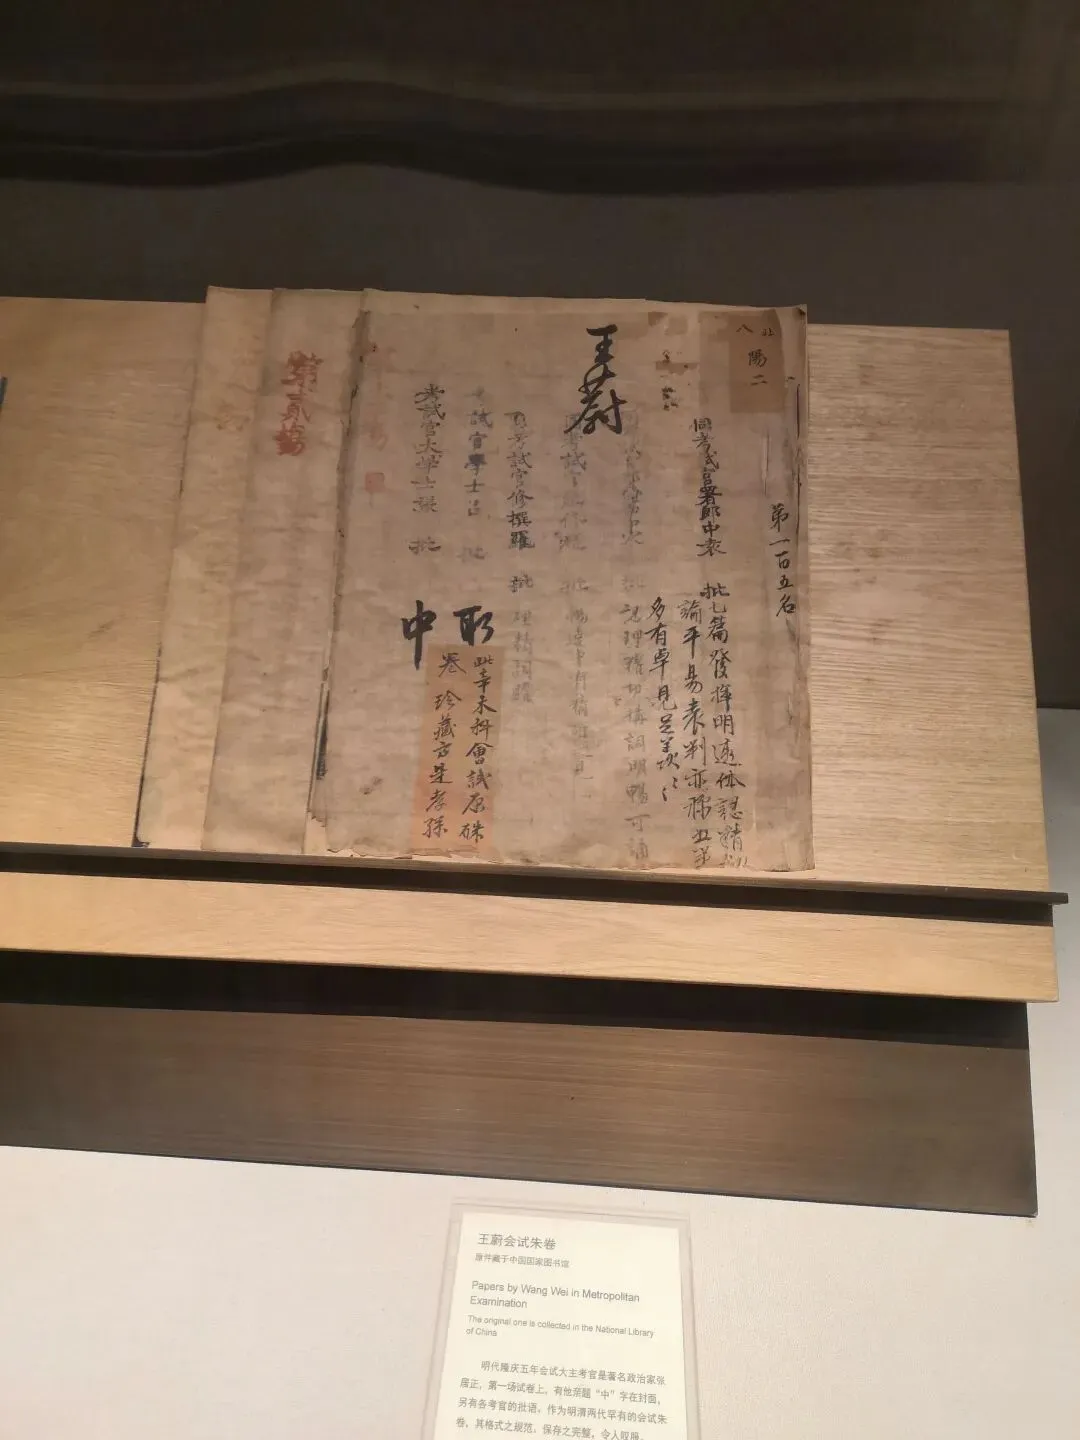 北
八
陽二
第一百五名
同考試官署郎中袁 批七篇發揮明遠体認精
論平易表判亦稱五策
多有卓見足羡
王蔚
批 認理精切搆詞明暢可誦
同考試官修撰羅 批 理精詞
試官學士呂 批
取
考試官大學士張 批
中
此辛未科會試原硃
卷珍藏方是孝孫
第貳場
王蔚会试朱卷
原件藏于中国国家图书馆
Papers by Wang Wei in Metropolitan
Examination
The original one is collected in the National Library
of China
明代隆庆五年会试大主考官是著名政治家张
居正，第一场试卷上，有他亲题“中”字在封面，
另有各考官的批语，作为明清两代罕有的会试朱
卷，其格式之规范，保存之完整，令人叹服。